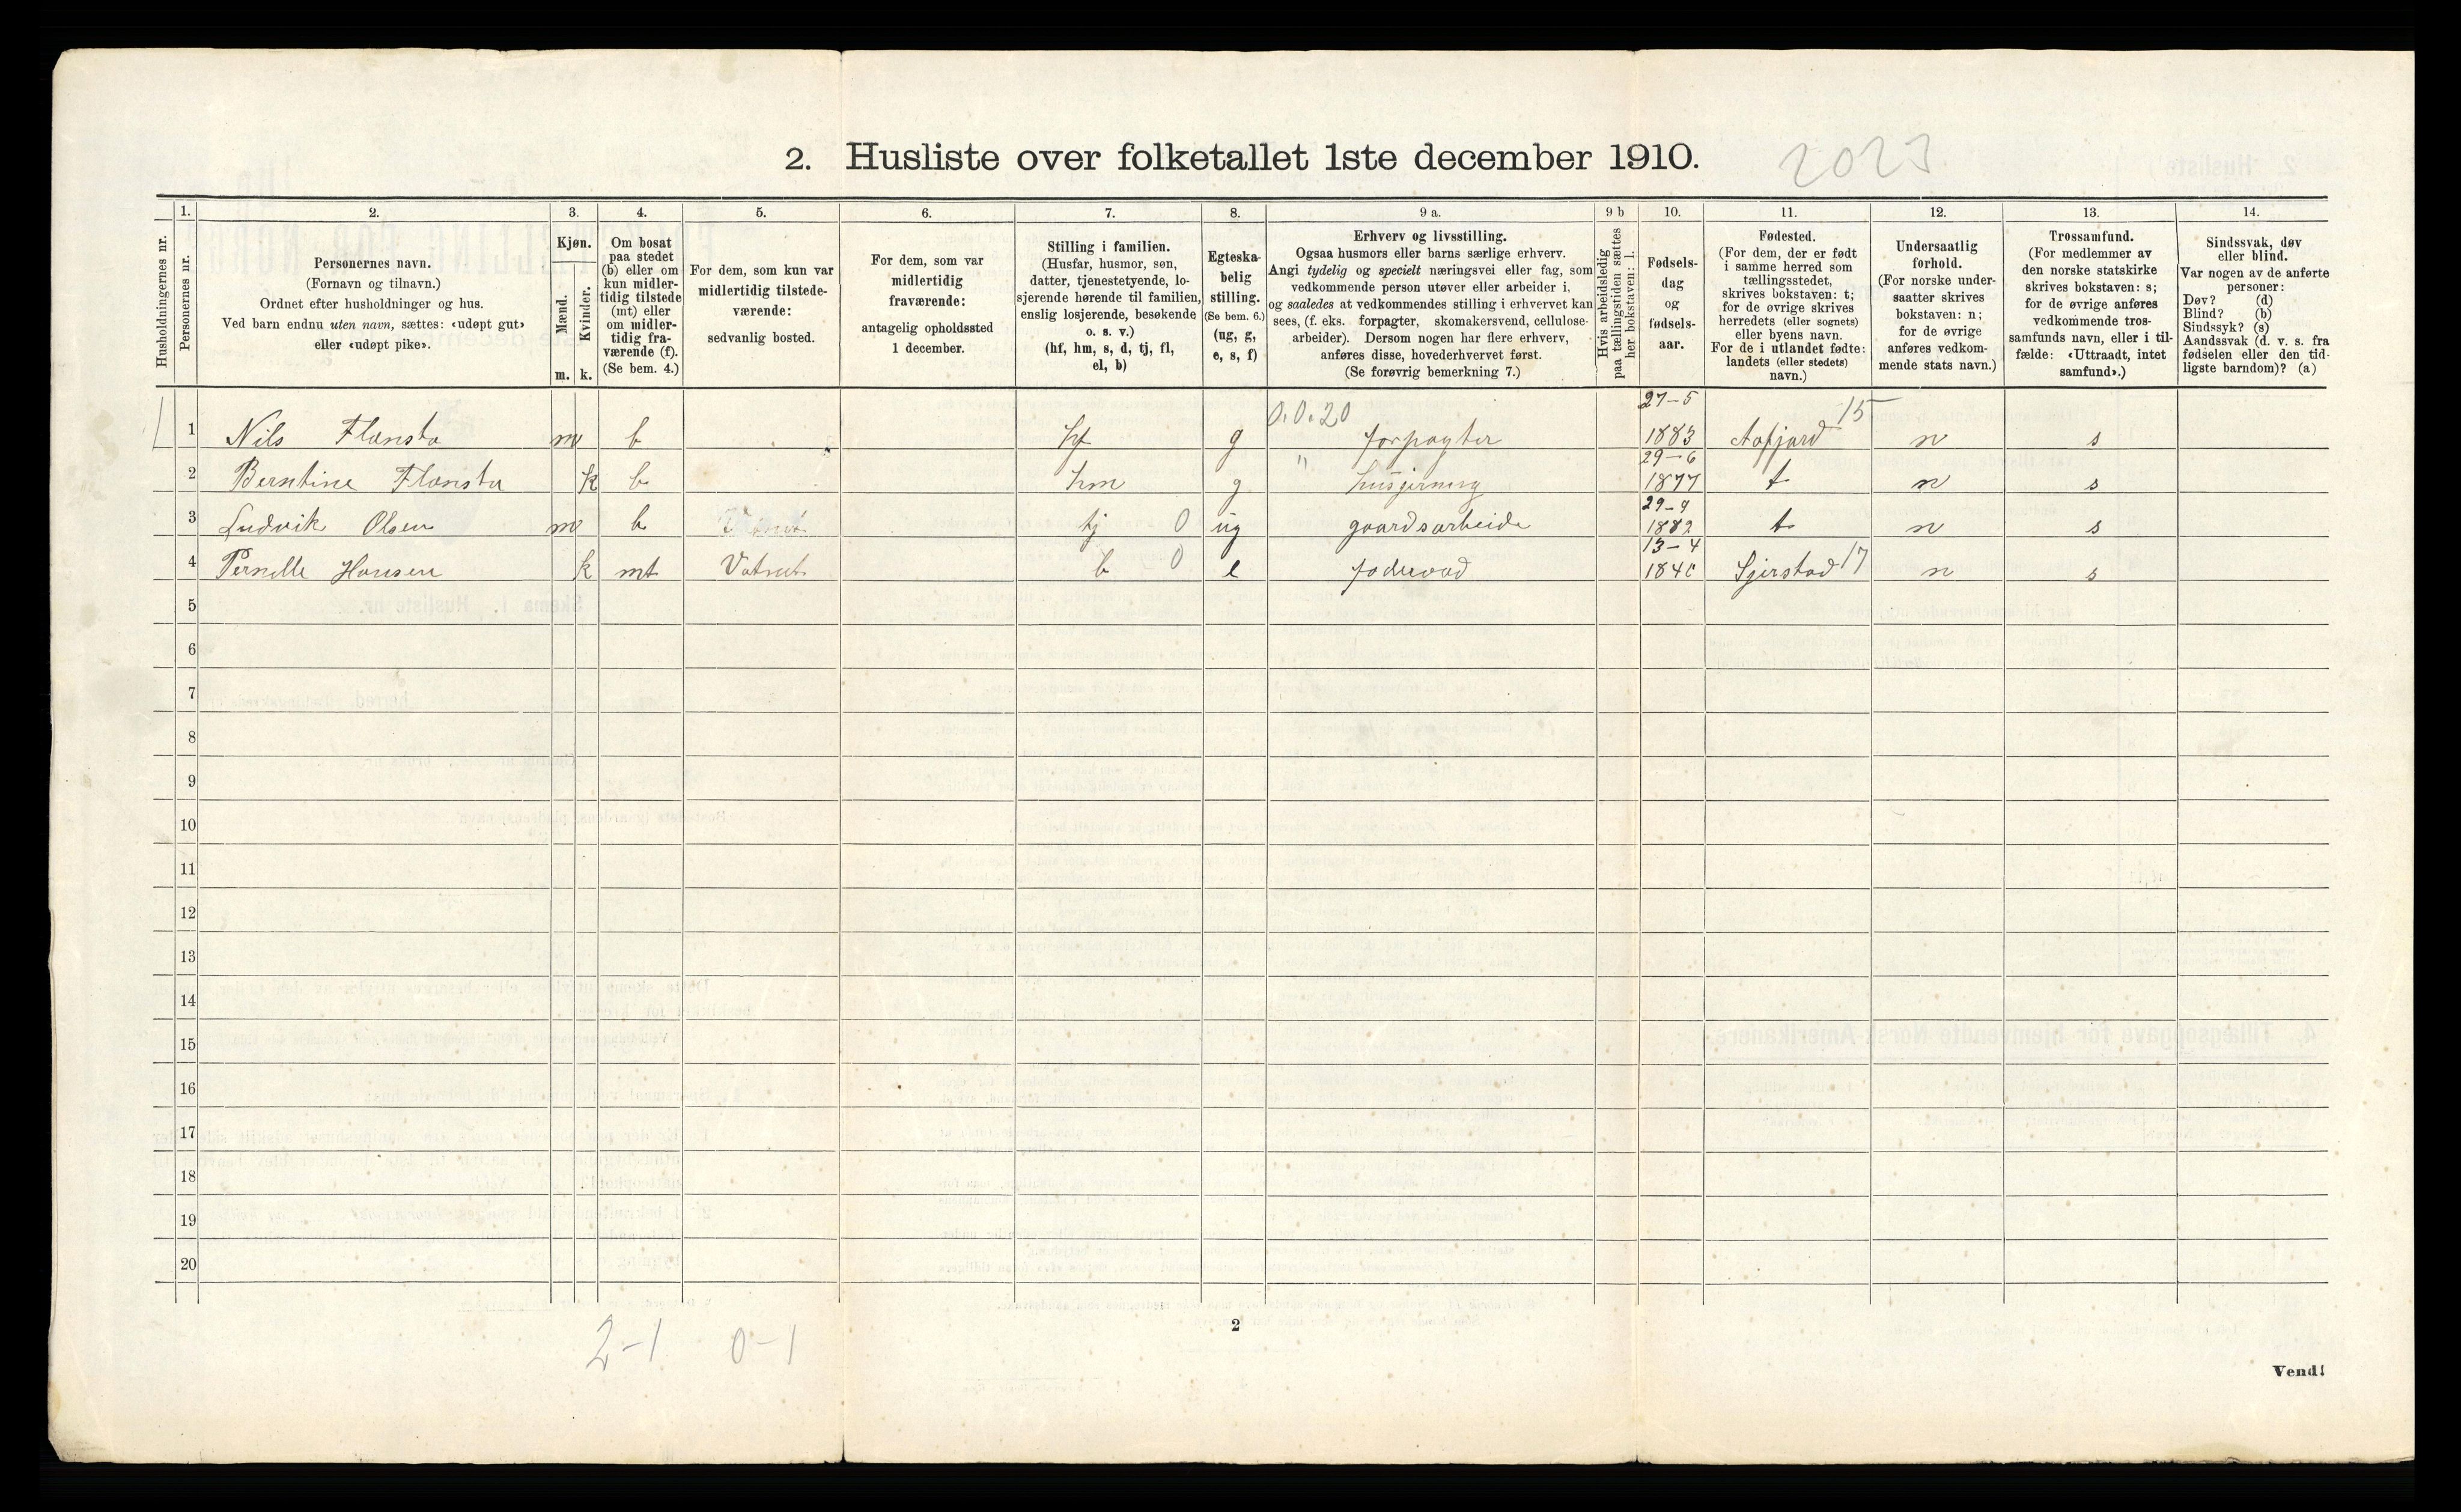 2. Husliste over folketallet 1ste december 1910.
2023
1. 2. 3. 4. 5. 6. 7. 8. 9 a. 9 b 10. 11. 12. 13. 14.
Husholdningernes nr.
Personernes nr.
Personernes navn.
(Fornavn og tilnavn.)
Ordnet efter husholdninger og hus.
Ved barn endnu uten navn, sættes: «udøpt gut»
eller «udøpt pike».
Kjøn.
Mænd.
Kvinder.
m. k.
Om bosat
paa stedet
(b) eller om
kun midler-
tidig tilstede
(mt) eller
om midler-
tidig fra-
værende (f).
(Se bem. 4.)
For dem, som kun var
midlertidig tilstede-
værende:
sedvanlig bosted.
For dem, som var
midlertidig
fraværende:
antagelig opholdssted
1 december.
Stilling i familien.
(Husfar, husmor, søn,
datter, tjenestetyende, lo-
sjerende hørende til familien,
enslig losjerende, besøkende
o. s. v.)
(hf, hm, s, d, tj, fl,
el, b)
Egteska-
belig
stilling.
(Se bem. 6.)
(ug, g,
e, s, f)
Erhverv og livsstilling.
Ogsaa husmors eller barns særlige erhverv.
Angi tydelig og specielt næringsvei eller fag, som
vedkommende person utøver eller arbeider i,
og saaledes at vedkommendes stilling i erhvervet kan
sees, (f. eks. forpagter, skomakersvend, cellulose-
arbeider). Dersom nogen har flere erhverv,
anføres disse, hovederhvervet først.
(Se forøvrig bemerkning 7.)
Hvis arbeidsledig
paa tællingstiden sættes
her bokstaven: l.
Fødsels-
dag
og
fødsels-
aar.
Fødested.
(For dem, der er født
i samme herred som
tællingsstedet,
skrives bokstaven: t;
for de øvrige skrives
herredets (eller sognets)
eller byens navn.
For de i utlandet fødte:
landets (eller stedets)
navn.)
Undersaatlig
forhold.
(For norske under-
saatter skrives
bokstaven: n;
for de øvrige
anføres vedkom-
mende stats navn.)
Trossamfund.
(For medlemmer av
den norske statskirke
skrives bokstaven: s;
for de øvrige anføres
vedkommende tros-
samfunds navn, eller i til-
fælde: «Uttraadt, intet
samfund».)
Sindssvak, døv
eller blind.
Var nogen av de anførte
personer:
Døv? (d)
Blind? (b)
Sindssyk? (s)
Aandssvak (d. v. s. fra
fødselen eller den tid-
ligste barndom)? (a)
0.0.20 27-5 15
1 Nils Flønsta m b hf g forpagter 1883 Aafjord n s
" 29-6
2 Berntine Flønsta k b hm g husgjerning 1877 t n s
29-9
3 Ludvik Olsen m b tj 0 ug gaardsarbeide 1882 t n s
13-4
4 Pernille Hansen k mt Vatnet b 0 e føderaad 1840 Gjerstad 17 n s
5
6
7
8
9
10
11
12
13
14
15
16
17
18
19
20
2-1 0-1
2
Vend!